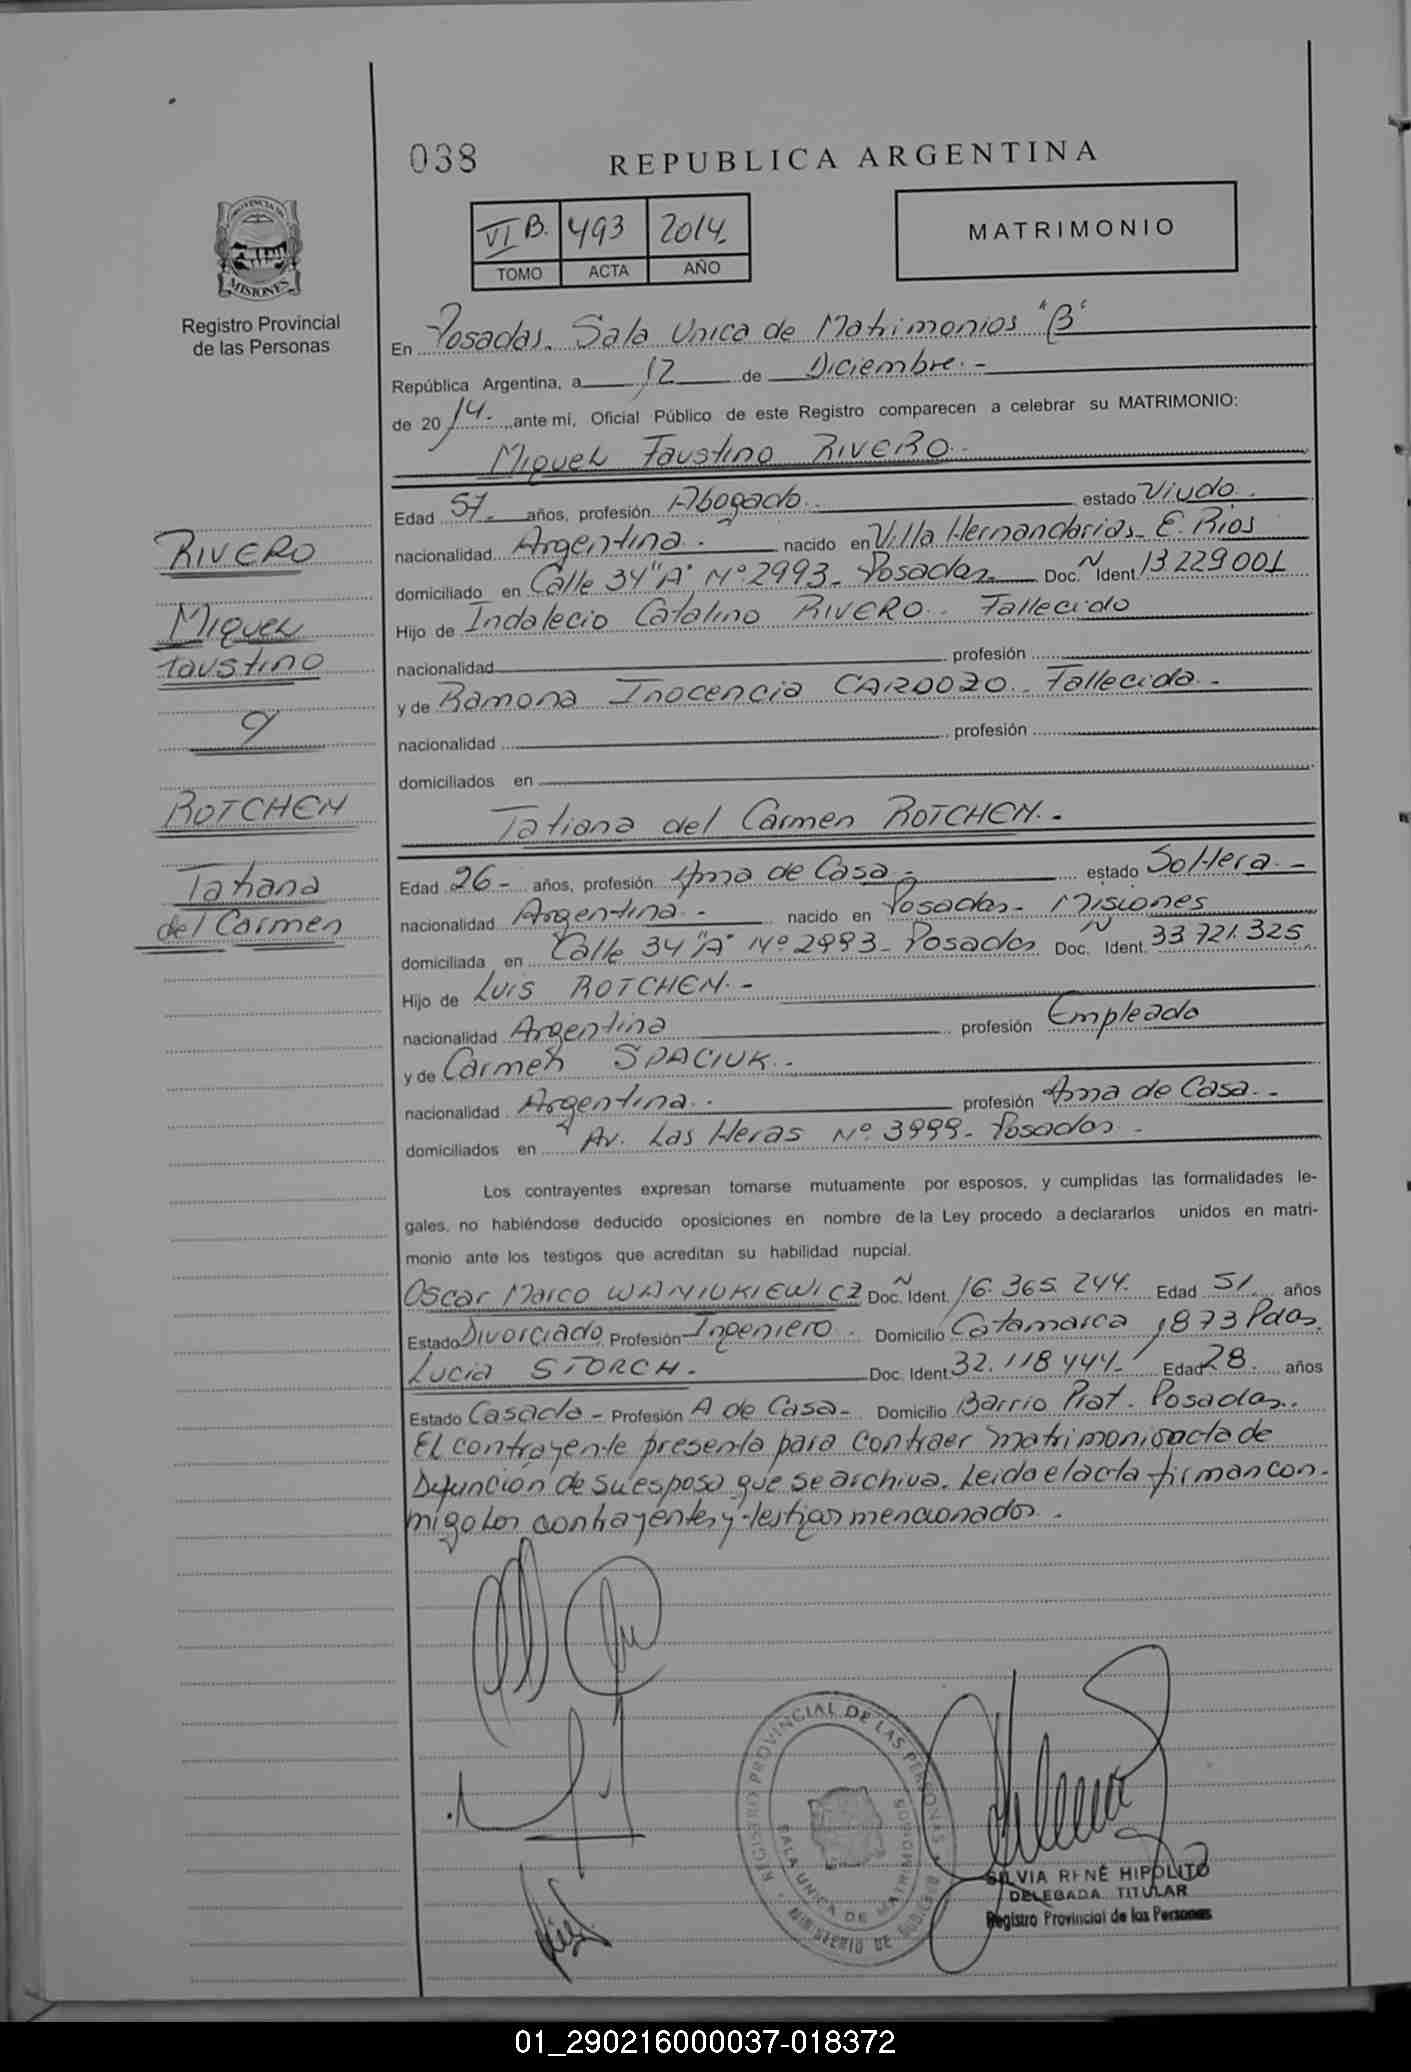 038
REPUBLICA ARGENTINA
VI B. 493 2014.
TOMO ACTA AÑO
MATRIMONIO
PROVINCIA DE
MISIONES
Registro Provincial
de las Personas
En Posadas. Sala Unica de Matrimonios "B"
República Argentina, a 12 de Diciembre. -
de 2014. ,ante mi, Oficial Público de este Registro comparecen a celebrar su MATRIMONIO:
Miguel Faustino RIVERO.
Edad 57. años, profesión Abogado. estado Viudo.
nacionalidad Argentina. nacido en Villa Hernandarias - E. Rios
domiciliado en Calle 34 "A" Nº 2993 - Posadas Doc. N Ident. 13 229 001
Hijo de Indalecio Catalino RIVERO. Fallecido
nacionalidad profesión
y de Ramona Inocencia CARDOZO. Fallecida. -
nacionalidad profesión
domiciliados en
RIVERO
Miguel
Faustino
y
ROTCHEN
Tatiana
del Carmen
Tatiana del Carmen ROTCHEN. -
Edad 26 - años, profesión Ama de Casa - estado Soltera. -
nacionalidad Argentina. - nacido en Posadas - Misiones
domiciliada en Calle 34 "A" Nº 2993 - Posadas Doc. N Ident. 33 721.325
Hijo de Luis ROTCHEN. -
nacionalidad Argentina profesión Empleado
y de Carmen SPACIUK. -
nacionalidad Argentina. profesión Ama de Casa. -
domiciliados en Av. Las Heras Nº 3999 - Posadas. -
Los contrayentes expresan tomarse mutuamente por esposos, y cumplidas las formalidades le-
gales, no habiéndose deducido oposiciones en nombre de la Ley procedo a declararlos unidos en matri-
monio ante los testigos que acreditan su habilidad nupcial.
Oscar Marco WANIUKIEWICZ Doc. N Ident. 16.365.244. Edad 51 años
Estado Divorciado Profesión Ingeniero. Domicilio Catamarca 1873 Pdas.
Lucia STORCH. Doc. Ident. 32.118444. Edad 28. años
Estado Casada - Profesión A de Casa - Domicilio Barrio Prat. Posadas.
El contrayente presenta para contraer matrimonio acta de
Defunción de su esposa que se archiva. Leida el acta firman con-
migo los contrayentes y testigos mencionados. -
REGISTRO PROVINCIAL DE LAS PERSONAS
SALA UNICA DE MATRIMONIOS
MINISTERIO DE GOBIERNO
SILVIA RENÉ HIPOLITO
DELEGADA TITULAR
Registro Provincial de las Personas
01_290216000037-018372